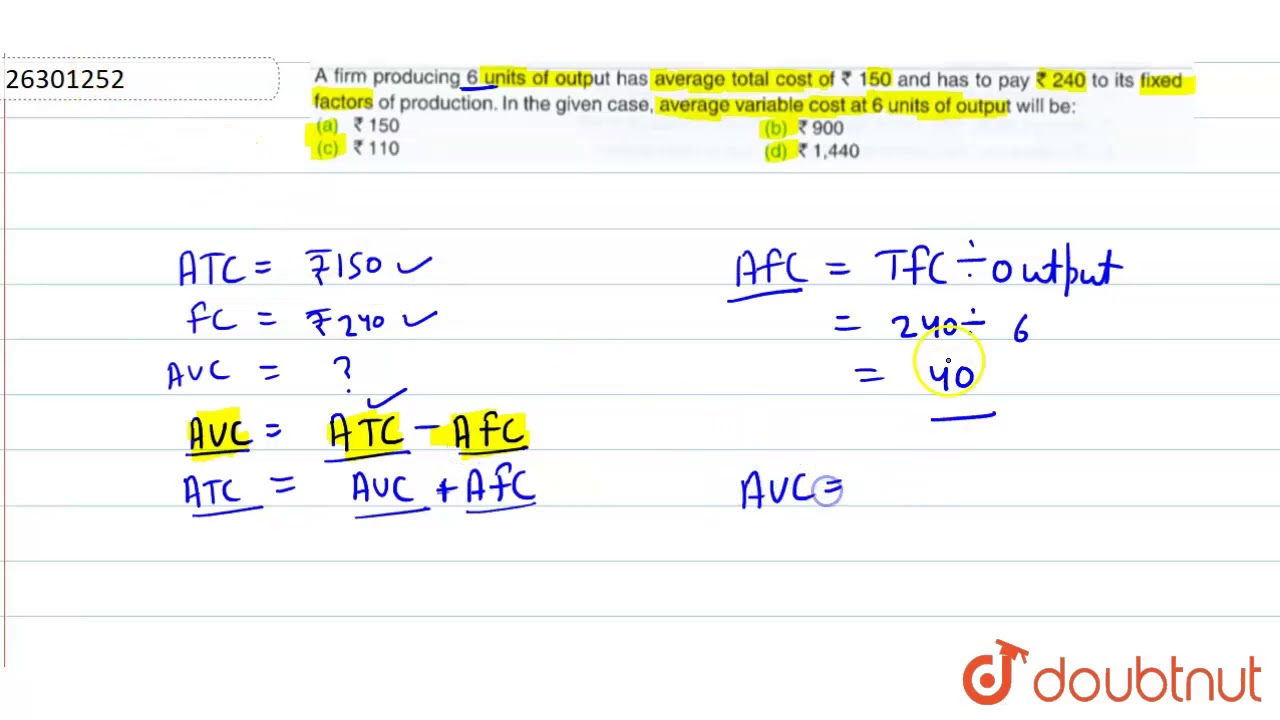 26301252
A firm producing 6 units of output has average total cost of ₹ 150 and has to pay ₹ 240 to its fixed
factors of production. In the given case, average variable cost at 6 units of output will be:
(a) ₹ 150 (b) ₹ 900
(c) ₹ 110 (d) ₹ 1,440
ATC = ₹150 ✓
fC = ₹240 ✓
AVC = ?
AVC = ATC - AfC
ATC = AVC + AfC
AfC = TfC ÷ output
= 240 ÷ 6
= 40
AVC =
doubtnut